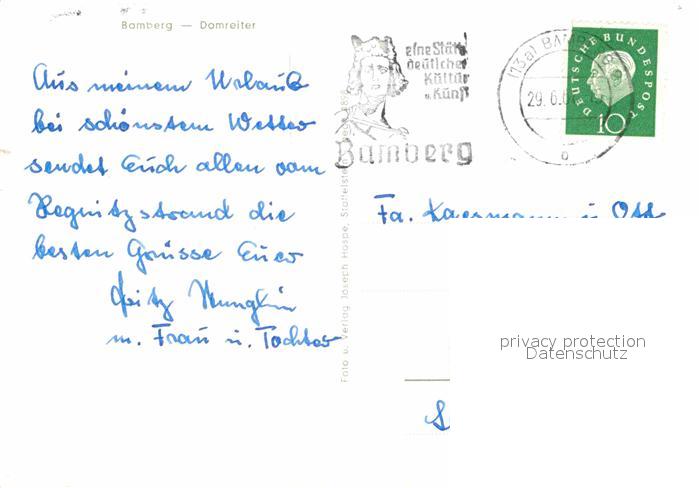 Bamberg — Domreiter
Aus meinem Urlaub
bei schönstem Wetter
sendet Euch allen vom
Regnitzstrand die
besten Grüsse Euer
Fritz
m. Frau u. Tochter
eine Stätte
deutscher
Kultur
u. Kunst
Bamberg
(13a) BAMB
29.6.6
DEUTSCHE BUNDESPOST
10
Fa. u. Ott
Foto u. Verlag Joseph Hospe, Staffelstein
privacy protection
Datenschutz